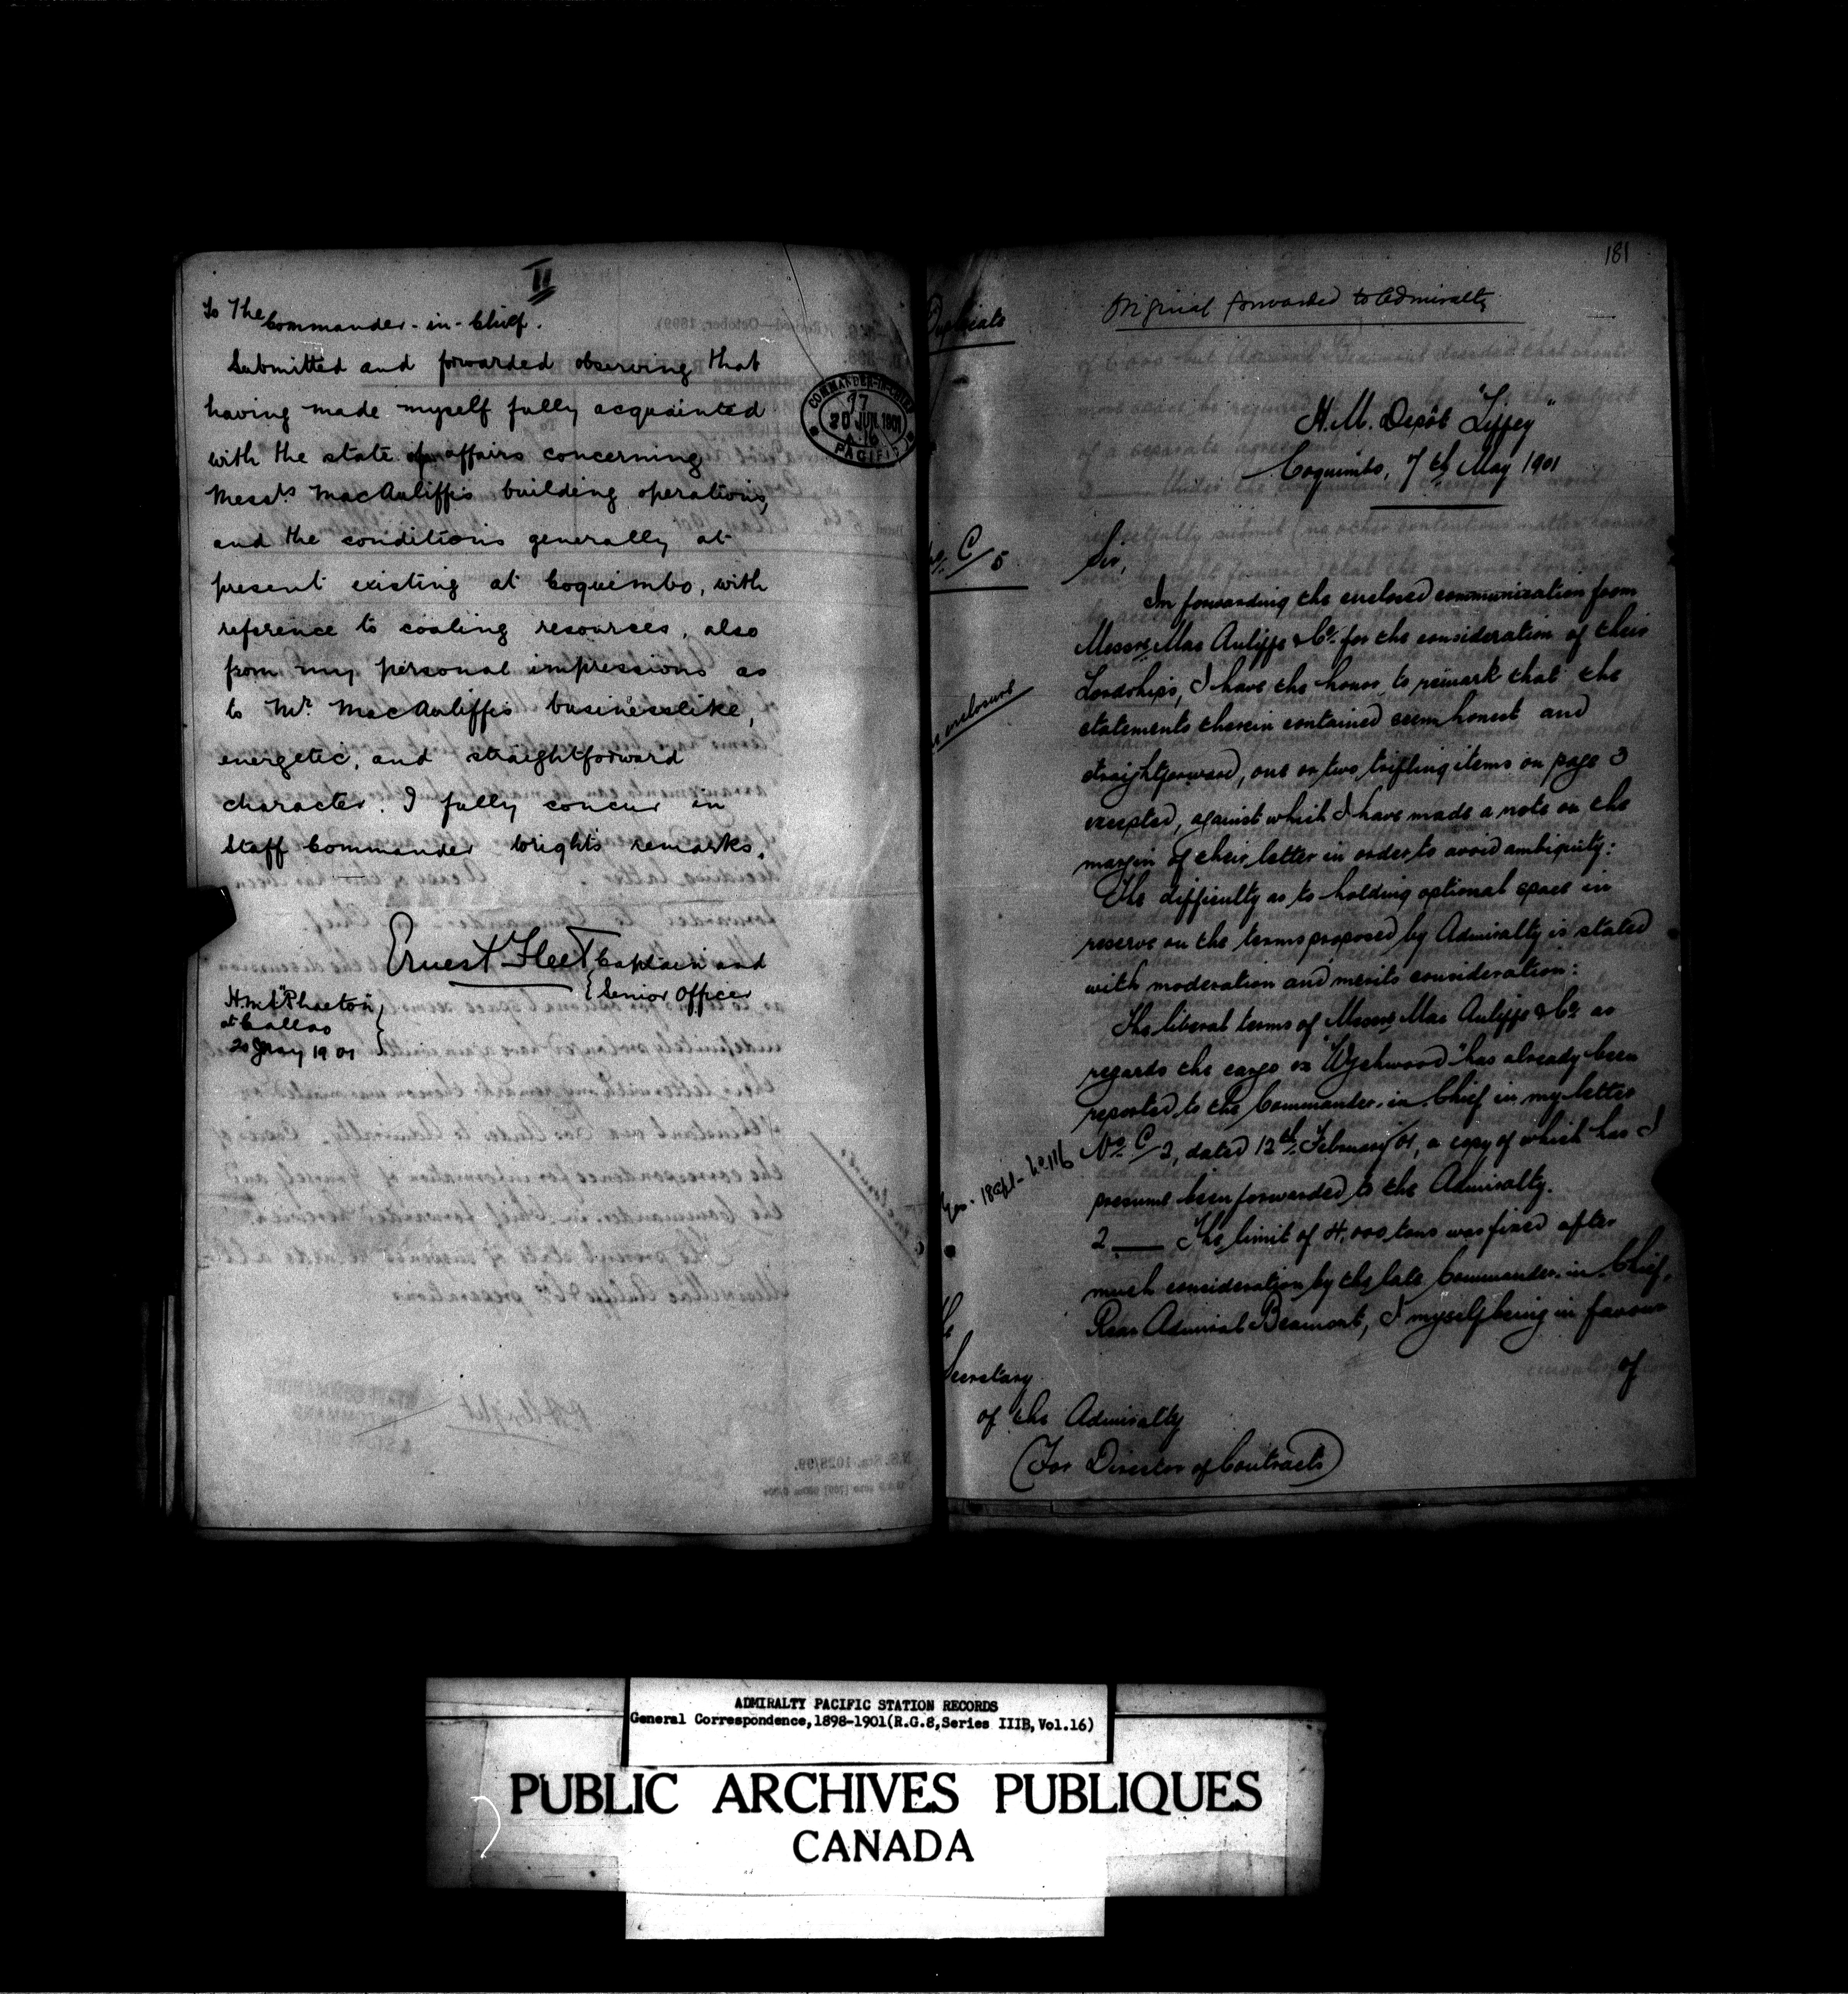 II
To The
Commander-in-Chief.
Submitted and forwarded observing that
having made myself fully acquainted
with the state of affairs concerning
Messrs MacAuliffe's building operations,
and the conditions generally at
present existing at Coquimbo, with
reference to coaling resources, also
from my personal impressions as
to Mr. MacAuliffe's businesslike,
energetic, and straightforward
character. I fully concur in
Staff Commander Wright's remarks.
Ernest Fleet Captain and
Senior Officer
H.M.S "Phaeton",
at Callao
20 May 1901
COMMANDER-IN-CHIEF
20 JUN. 1901
PACIFIC
181
Duplicate
Original forwarded to Admiralty
H.M. Depôt "Liffey"
Coquimbo, 7th May 1901
C/5
Sir,
In forwarding the enclosed communication from
Messrs Mac Auliffe & Co. for the consideration of their
Lordships, I have the honor to remark that the
enclosure
statements therein contained seem honest and
straightforward, one or two trifling items on page 3
excepted, against which I have made a note on the
margin of their letter in order to avoid ambiguity:
The difficulty as to holding optional space in
reserve on the terms proposed by Admiralty is stated
with moderation and merits consideration:
The liberal terms of Messrs Mac Auliffe & Co. as
regards the cargo ex "Wychwood" has already been
reported to the Commander-in-Chief in my letter
No. C/2, dated 12th February/01, a copy of which has I
presume been forwarded to the Admiralty.
2 ___ The limit of 4,000 tons was fixed after
much consideration by the late Commander-in-Chief,
Rear Admiral Beaumont, I myself being in favour
of
Secretary
of the Admiralty
(For Director of Contracts)
ADMIRALTY PACIFIC STATION RECORDS
General Correspondence,1898-1901(R.G.8,Series IIIB,Vol.16)
PUBLIC ARCHIVES PUBLIQUES
CANADA